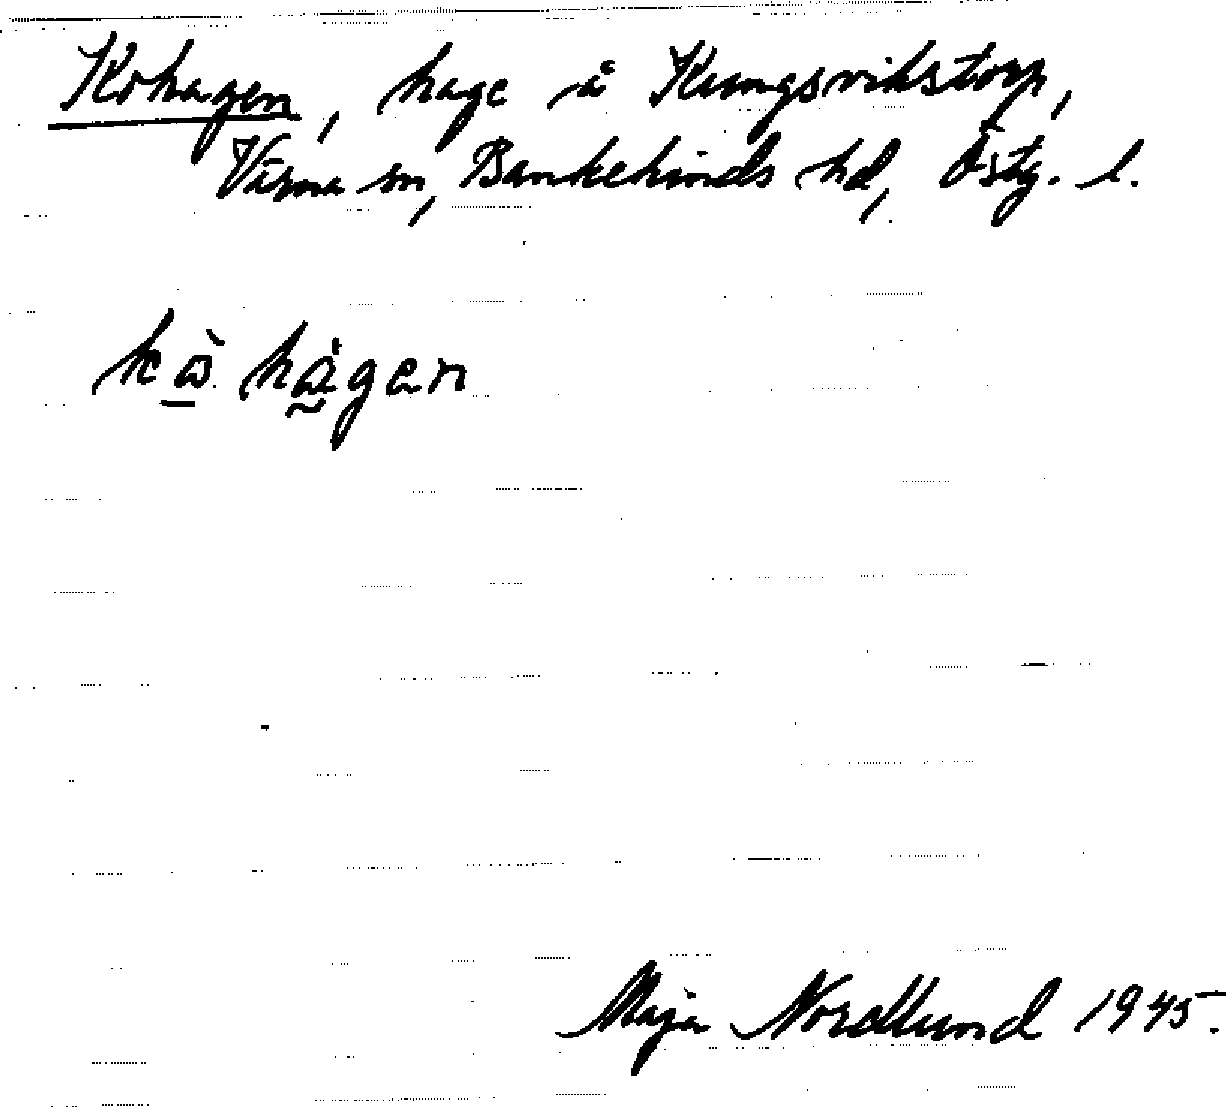 Kohagen, hage å Kungsvikstorp,
Värna sn, Bankekinds hd, Östg. l.
kò hågen
Maja Nordlund 1945.